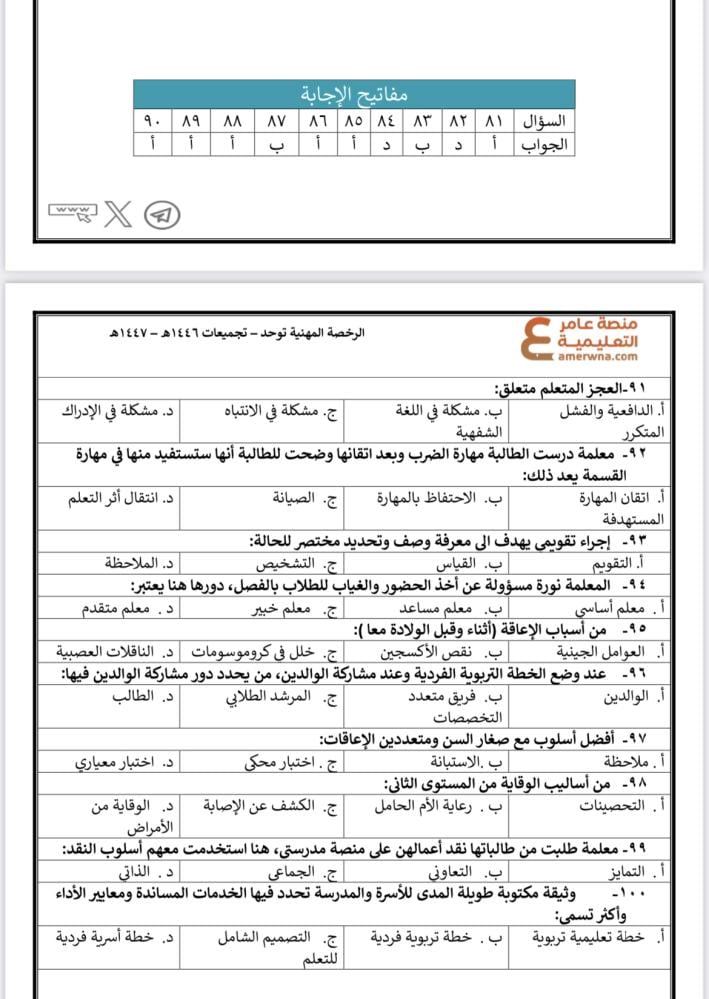 مفاتيح الإجابة
السؤال ٨١ ٨٢ ٨٣ ٨٤ ٨٥ ٨٦ ٨٧ ٨٨ ٨٩ ٩٠
الجواب أ د ب د أ أ ب أ أ أ
www
منصة عامر
التعليمية
amerwna.com
الرخصة المهنية توحد – تجميعات ١٤٤٦هـ – ١٤٤٧هـ
٩١-العجز المتعلم متعلق:
أ. الدافعية والفشل ب. مشكلة في اللغة ج. مشكلة في الانتباه د. مشكلة في الإدراك
المتكرر الشفهية
٩٢- معلمة درست الطالبة مهارة الضرب وبعد اتقانها وضحت للطالبة أنها ستستفيد منها في مهارة
القسمة بعد ذلك:
أ. اتقان المهارة ب. الاحتفاظ بالمهارة ج. الصيانة د. انتقال أثر التعلم
المستهدفة
٩٣- إجراء تقويمي يهدف الى معرفة وصف وتحديد مختصر للحالة:
أ. التقويم ب. القياس ج. التشخيص د. الملاحظة
٩٤- المعلمة نورة مسؤولة عن أخذ الحضور والغياب للطلاب بالفصل، دورها هنا يعتبر:
أ. معلم أساسي ب. معلم مساعد ج. معلم خبير د. معلم متقدم
٩٥- من أسباب الإعاقة (أثناء وقبل الولادة معا ):
أ. العوامل الجينية ب. نقص الأكسجين ج. خلل في كروموسومات د. الناقلات العصبية
٩٦- عند وضع الخطة التربوية الفردية وعند مشاركة الوالدين، من يحدد دور مشاركة الوالدين فيها:
أ. الوالدين ب. فريق متعدد ج. المرشد الطلابي د. الطالب
التخصصات
٩٧- أفضل أسلوب مع صغار السن ومتعددين الإعاقات:
أ. ملاحظة ب. الاستبانة ج. اختبار محكي د. اختبار معياري
٩٨- من أساليب الوقاية من المستوى الثاني:
أ. التحصينات ب. رعاية الأم الحامل ج. الكشف عن الإصابة د. الوقاية من
الأمراض
٩٩- معلمة طلبت من طالباتها نقد أعمالهن على منصة مدرستي، هنا استخدمت معهم أسلوب النقد:
أ. التمايز ب. التعاوني ج. الجماعي د. الذاتي
١٠٠- وثيقة مكتوبة طويلة المدى للأسرة والمدرسة تحدد فيها الخدمات المساندة ومعايير الأداء
وأكثر تسمى:
أ. خطة تعليمية تربوية ب. خطة تربوية فردية ج. التصميم الشامل د. خطة أسرية فردية
للتعلم